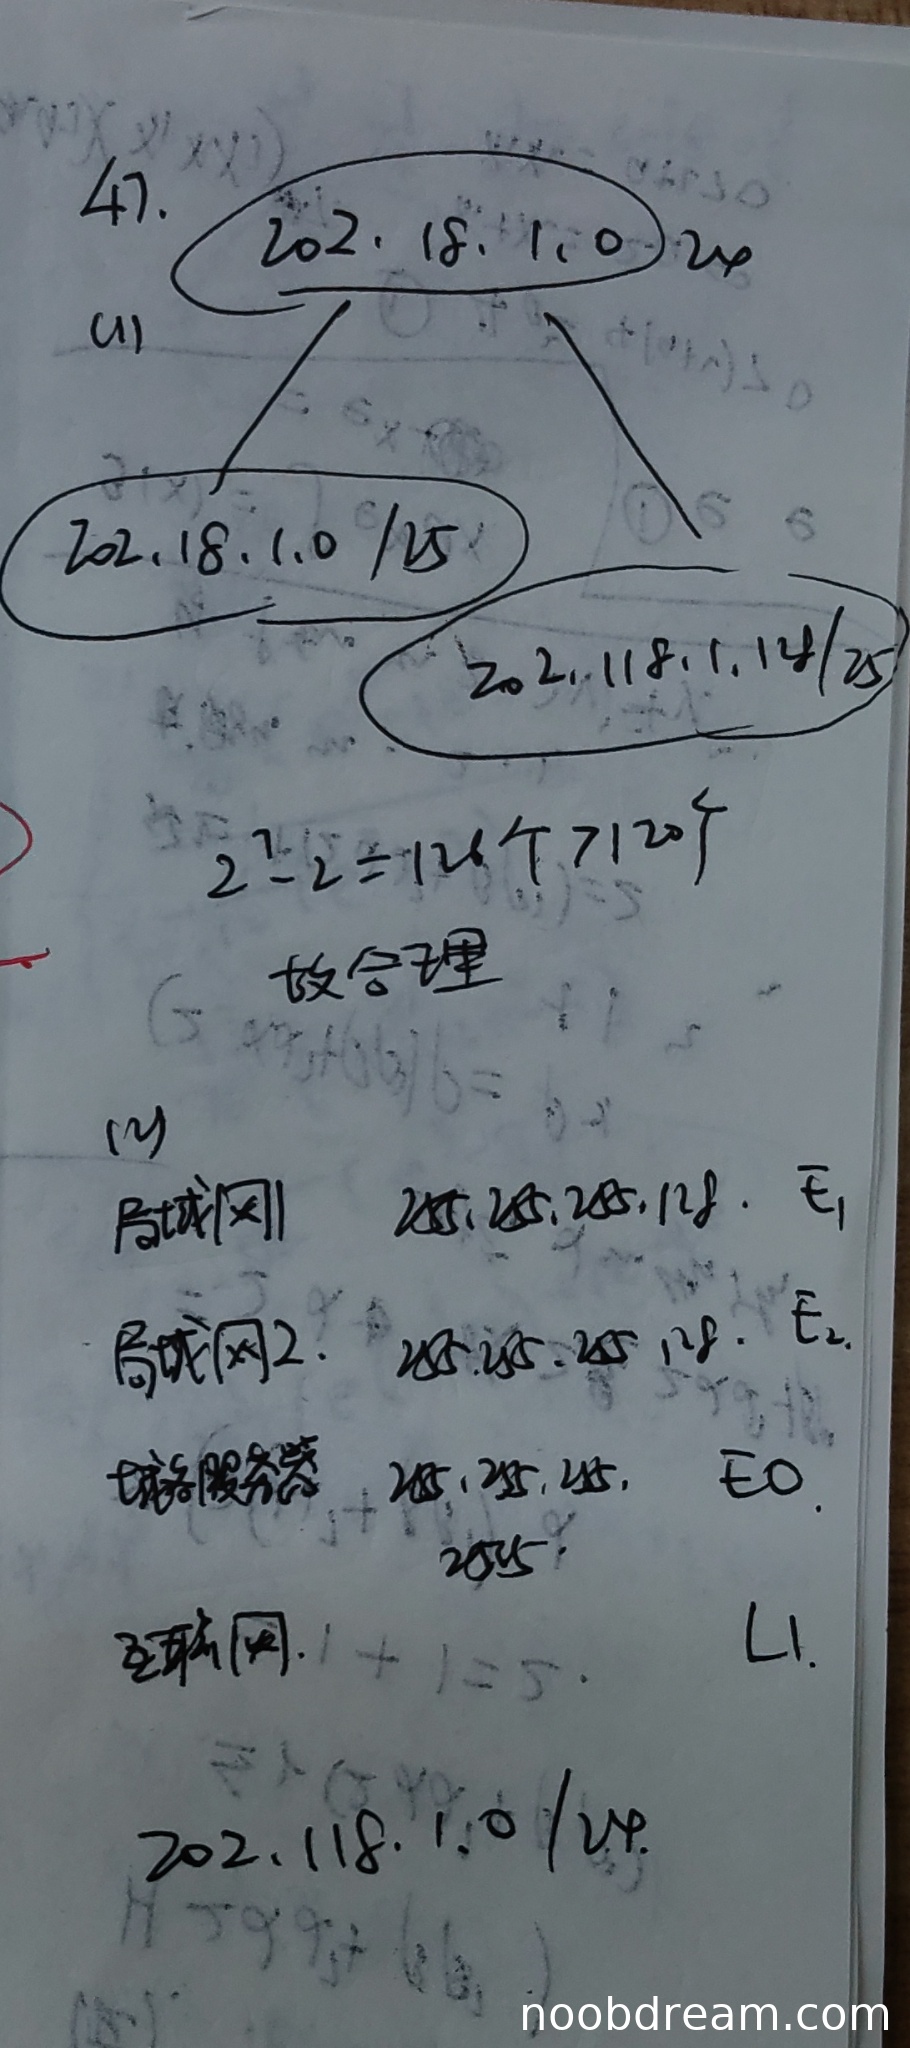 47.
202.18.1.0 24
(1)
202.18.1.0 /25
202.118.1.128/25
2⁷-2=126个>120个
故合理
(2)
局域网1 255.255.255.128. E1
局域网2. 255.255.255.128. E2.
域名服务器 255.255.255. E0.
255.
互联网. L1.
202.118.1.0/24.
noobdream.com